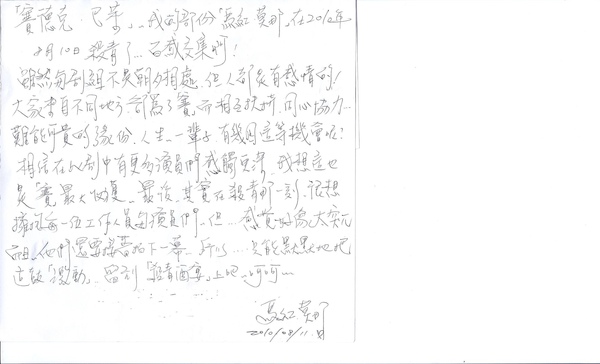 「賽德克‧巴萊」...我的部份「馬紅莫那」在2010年
8月10日殺青了...百感交集啊!
雖然每劇組不是朝夕相處...但人都是有感情的!
大家來自不同地方...都為了賽.而相互扶持.同心協力...
難能可貴的緣份.人生.一輩子.有幾回這等機會呢?
相信在此劇中有更多演員們感觸更深...我想這也
是「賽」最大收穫...最後.其實在殺青那一刻.很想
擁抱每一位工作人員與演員們...但...感覺好像太突兀
而且他們還要接著拍下一幕...所以...只能默默地把
這股「激動」...留到「殺青酒宴」上吧...呵呵...
馬紅莫那
2010/08/11.